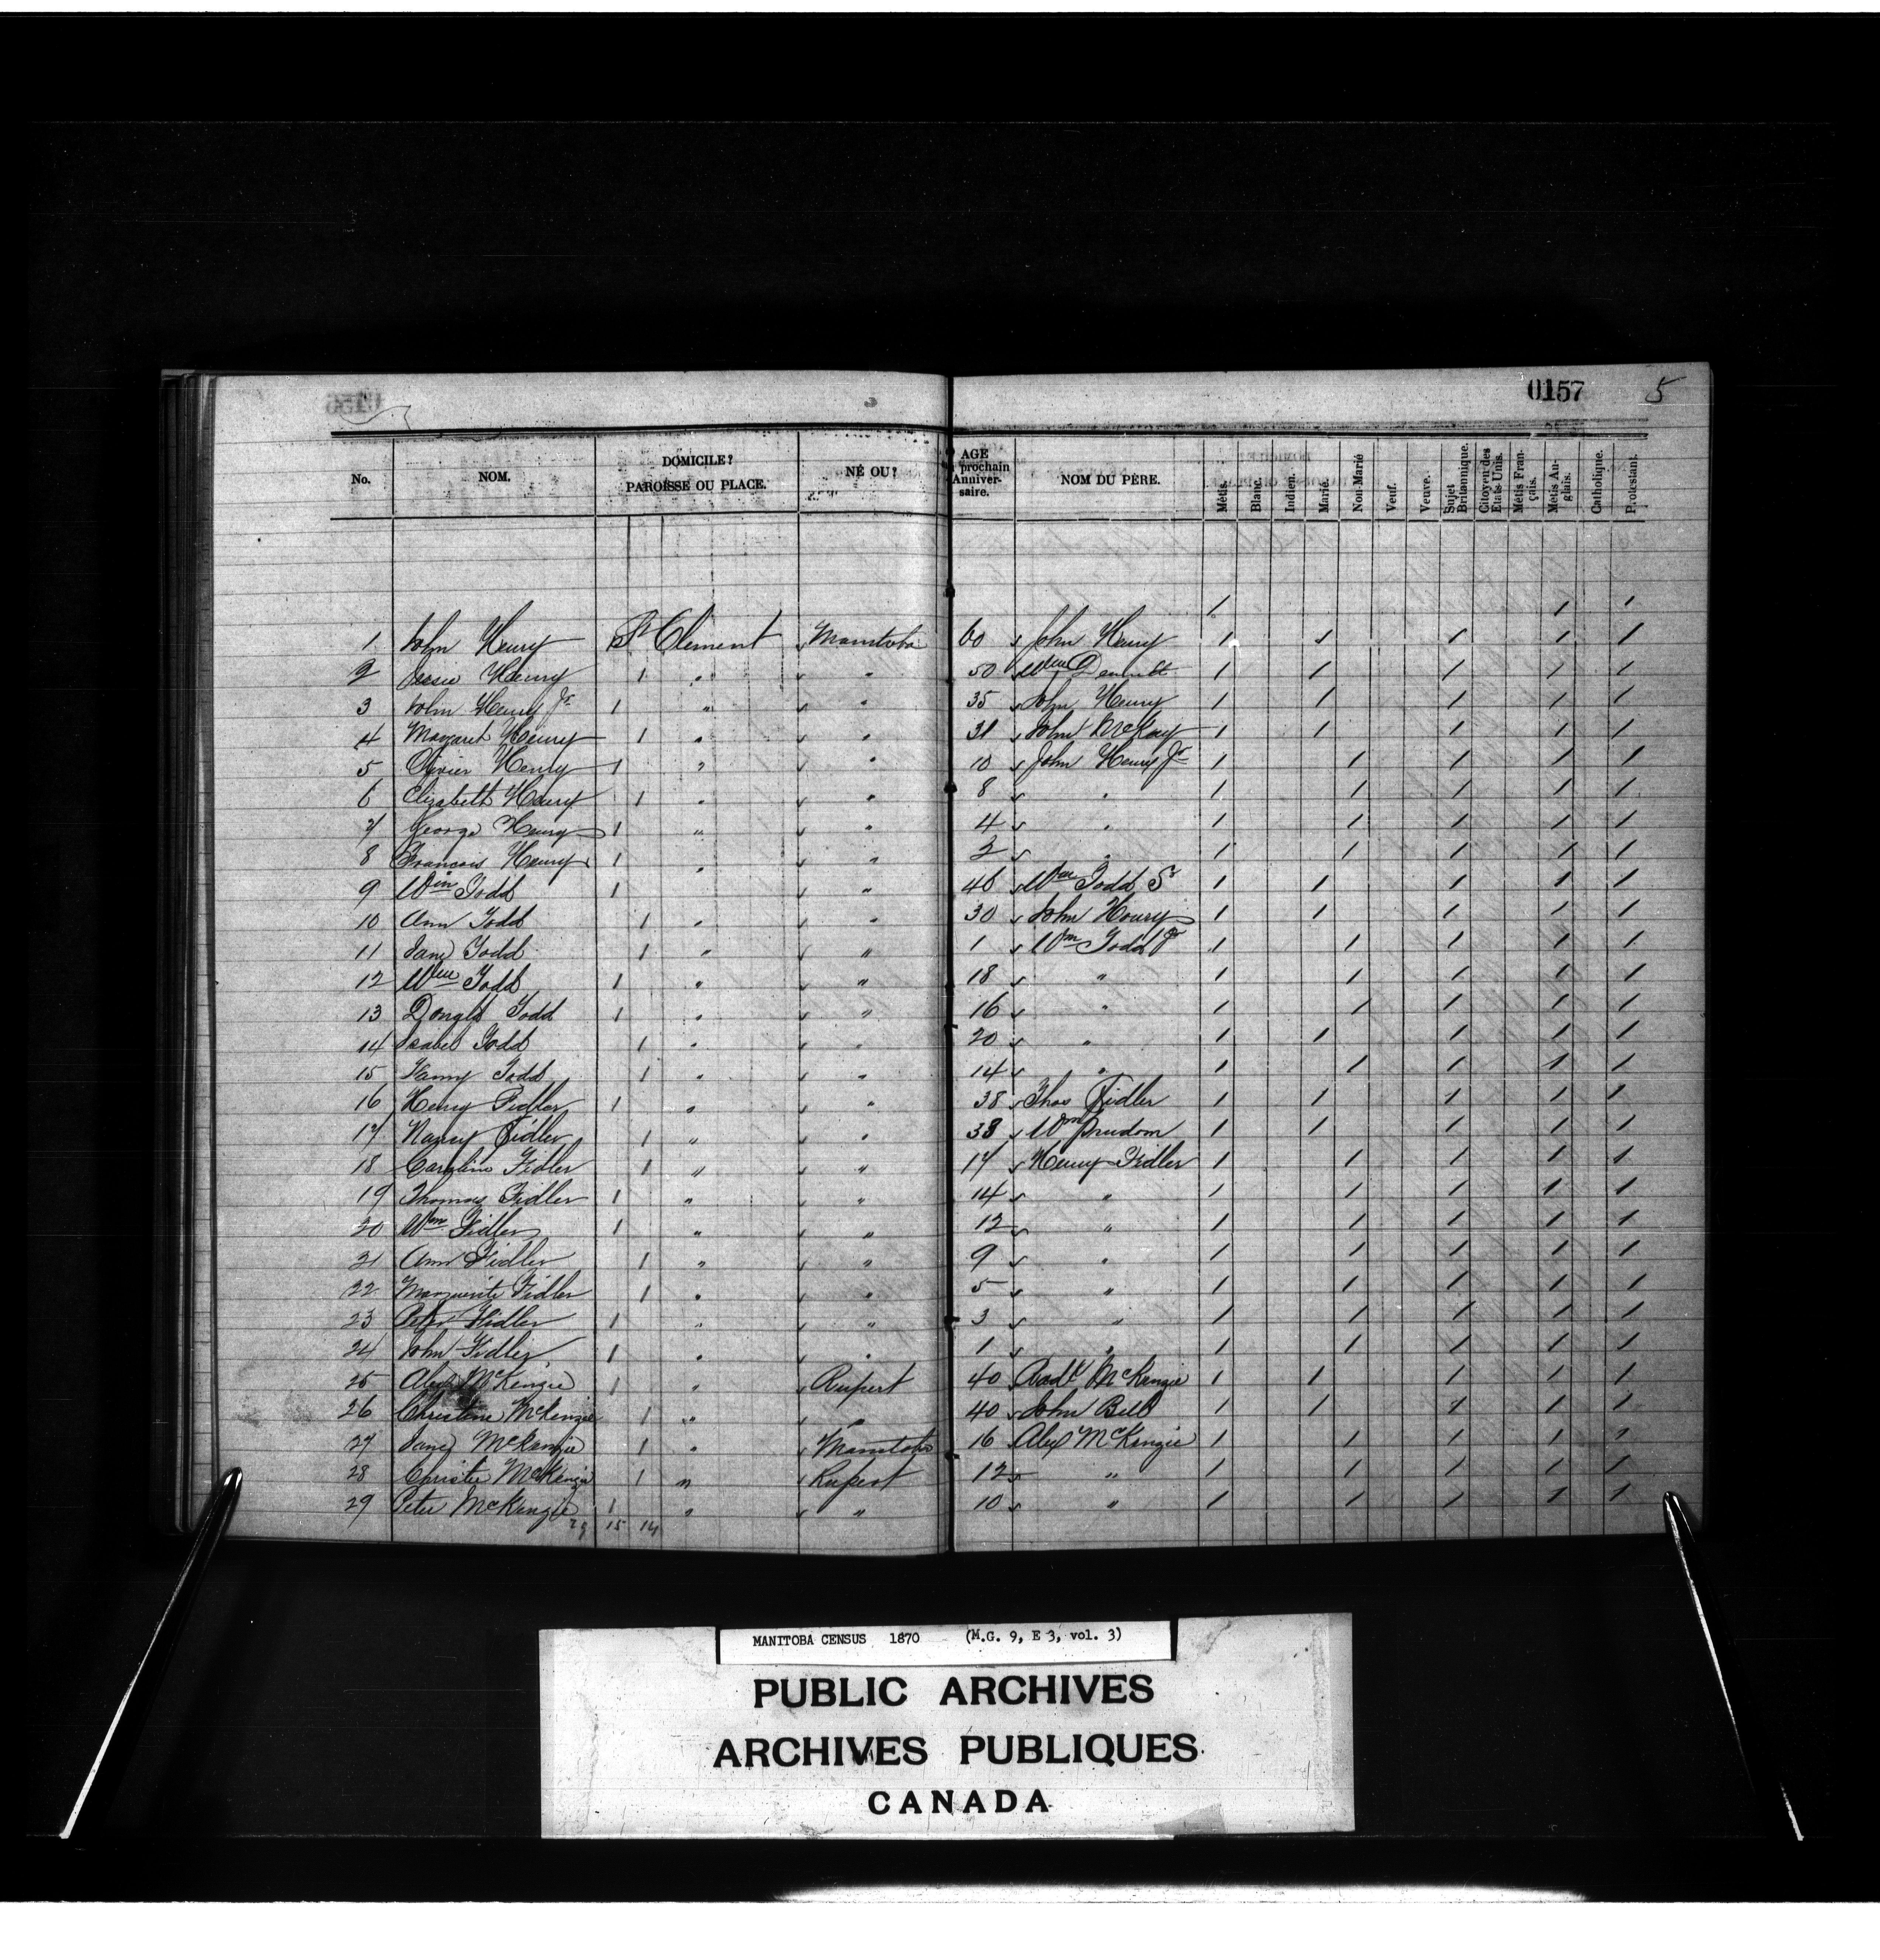 0157 5
No. NOM. DOMICILE? PAROISSE OU PLACE. NÉ OU? AGE prochain Anniver-saire. NOM DU PÈRE. Métis. Blanc. Indien. Marié. Non-Marié Veuf. Veuve. Sujet Britannique. Citoyen des Etats-Unis. Métis Fran-çais. Métis An-glais. Catholique. Protestant.
/ / /
1 John Henry St Clement Manitoba 60 John Henry / / / / /
2 Jessie Henry 1 " " 50 Wm / / / / /
3 John Henry Jr 1 " " 35 John Henry / / / / /
4 Margaret Henry 1 " " 31 John McKay / / / / /
5 Olivier Henry 1 " " 10 John Henry Jr / / / / /
6 Elizabeth Henry 1 " " 8 " / / / / /
7 George Henry 1 " " 4 " / / / / /
8 Francois Henry 1 " " 2 " / / / / /
9 Wm Todd 1 " 46 Wm Todd Sr / / / / /
10 Ann Todd 1 " " 30 John Houry / / / / /
11 Jane Todd 1 " " 1 Wm Todd Jr / / / / /
12 Wm Todd 1 " " 18 " / / / / /
13 Donald Todd 1 " " 16 " / / / / /
14 Isabel Todd 1 " " 20 " / / / / /
15 Fanny Todd 1 " " 14 " / / / / /
16 Henry Fidler 1 " " 38 Thos Fidler / / / / /
17 Nancy Fidler 1 " " 38 Wm Prudom / / / / /
18 Caroline Fidler 1 " " 17 Henry Fidler / / / / /
19 Thomas Fidler 1 " " 14 " / / / / /
20 Wm Fidler 1 " " 12 " / / / / /
21 Ann Fidler 1 " " 9 " / / / / /
22 Marguerite Fidler 1 " " 5 " / / / / /
23 Peter Fidler 1 " " 3 " / / / / /
24 John Fidler 1 " " 1 " / / / / /
25 Alex McKenzie 1 " Rupert 40 McKenzie / / / / /
26 Christine McKenzie 1 " " 40 John Bell / / / / /
27 Jane McKenzie 1 " Manitoba 16 Alex McKenzie / / / / /
28 Christie McKenzie 1 " Rupert 12 " / / / / /
29 Peter McKenzie 1 " " 10 " / / / / /
29 15 14
MANITOBA CENSUS 1870 (M.G. 9, E 3, vol. 3)
PUBLIC ARCHIVES
ARCHIVES PUBLIQUES
CANADA